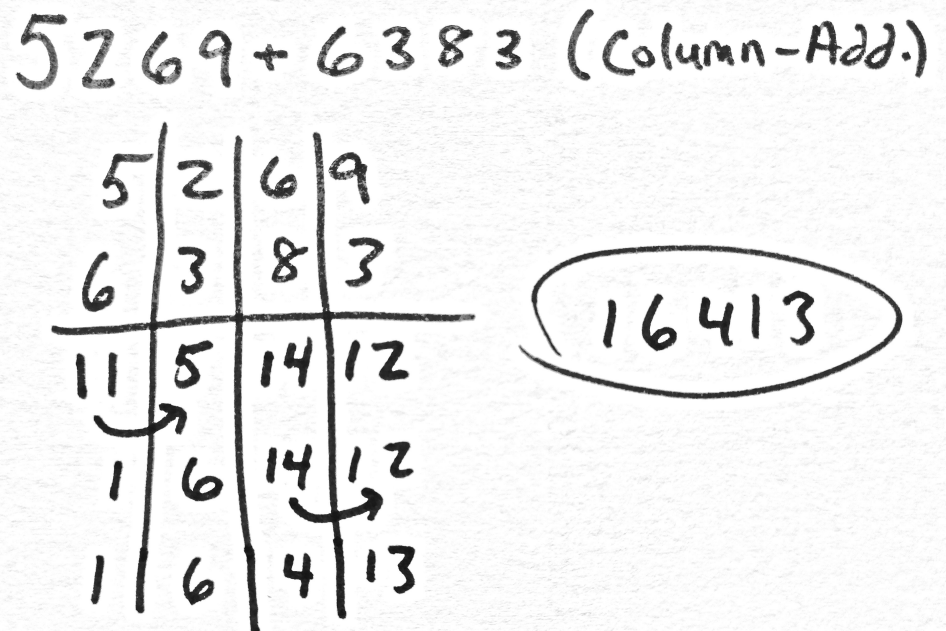 5269+6383 (Column-Add.)
5 2 6 9
6 3 8 3
11 5 14 12
16413
1 6 14 12
1 6 4 13